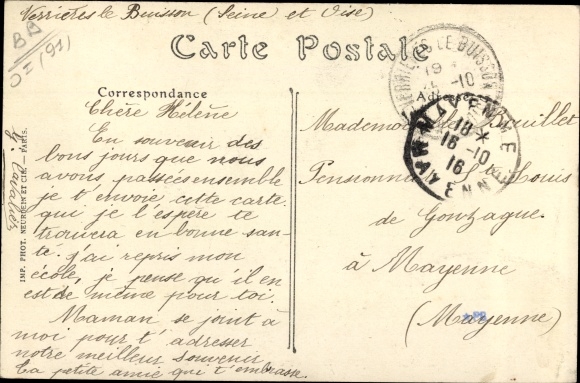 Verrières le Buisson (Seine et Oise)
BB
(91)
Carte Postale
Correspondance
Adresse
Chère Hélène
En souvenir des
bons jours que nous
avons passés ensemble
je t'envoie cette carte
qui je l'espère te
trouvera en bonne san-
té. j'ai repris mon
école, je pense qu'il en
est de même pour toi.
Maman se joint à
moi pour t'adresser
notre meilleur souvenir
La petite amie qui t'embrasse
IMP. PHOT. NEURDEIN ET CIE. — PARIS.
VERRIERES LE BUISSON
19
10
MAYENNE
18 *
16 - 10
16
MAYENNE
Mademoiselle
Pensionnat St Louis
de Gonzague
à Mayenne
(Mayenne)